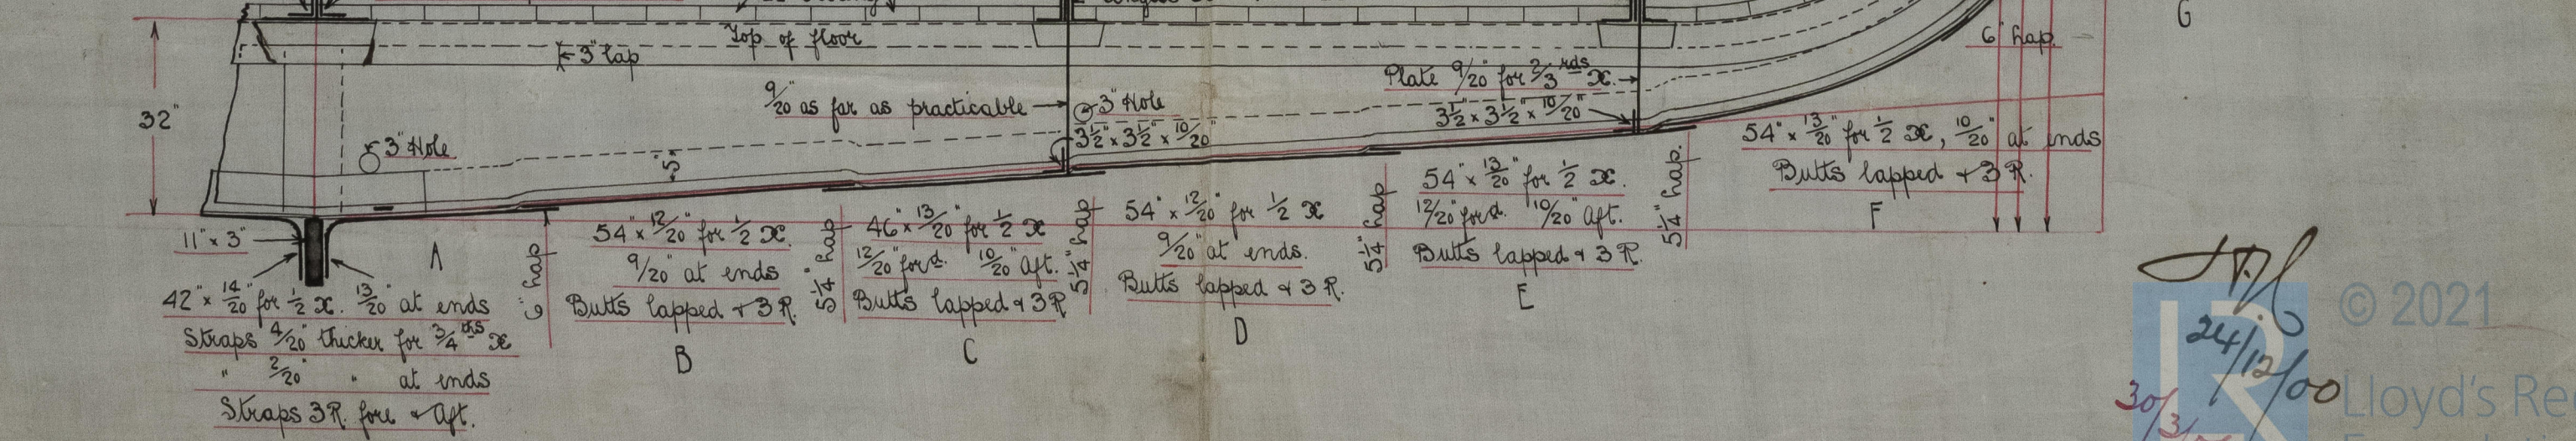 Top of floor
3" lap
6" lap.
G
32"
9/20" as far as practicable
3" Hole
3½" × 3½" × 10/20"
Plate 9/20" for 2/3rds ᴔ.
3½" × 3½" × 10/20"
3" Hole
5"
11" × 3"
A
42" × 14/20" for ½ ᴔ. 13/20" at ends
Straps 4/20" thicker for 3/4ths ᴔ
" 2/20" " at ends
Straps 3 R. fore & Aft.
6" lap
54" × 12/20" for ½ ᴔ.
9/20" at ends
Butts lapped & 3 R.
B
5¼" lap
46" × 13/20" for ½ ᴔ
12/20" ford. 10/20" Aft.
Butts lapped & 3 R
C
5¼" lap
54" × 12/20" for ½ ᴔ
9/20" at ends.
Butts lapped & 3 R.
D
5¼" lap
54" × 13/20" for ½ ᴔ.
12/20" ford. 10/20" Aft.
Butts lapped & 3 R.
E
5¼" lap.
54" × 13/20" for ½ ᴔ, 10/20" at ends
Butts lapped & 3 R.
F
24/12/00
30/3/
© 2021
Lloyd's Re